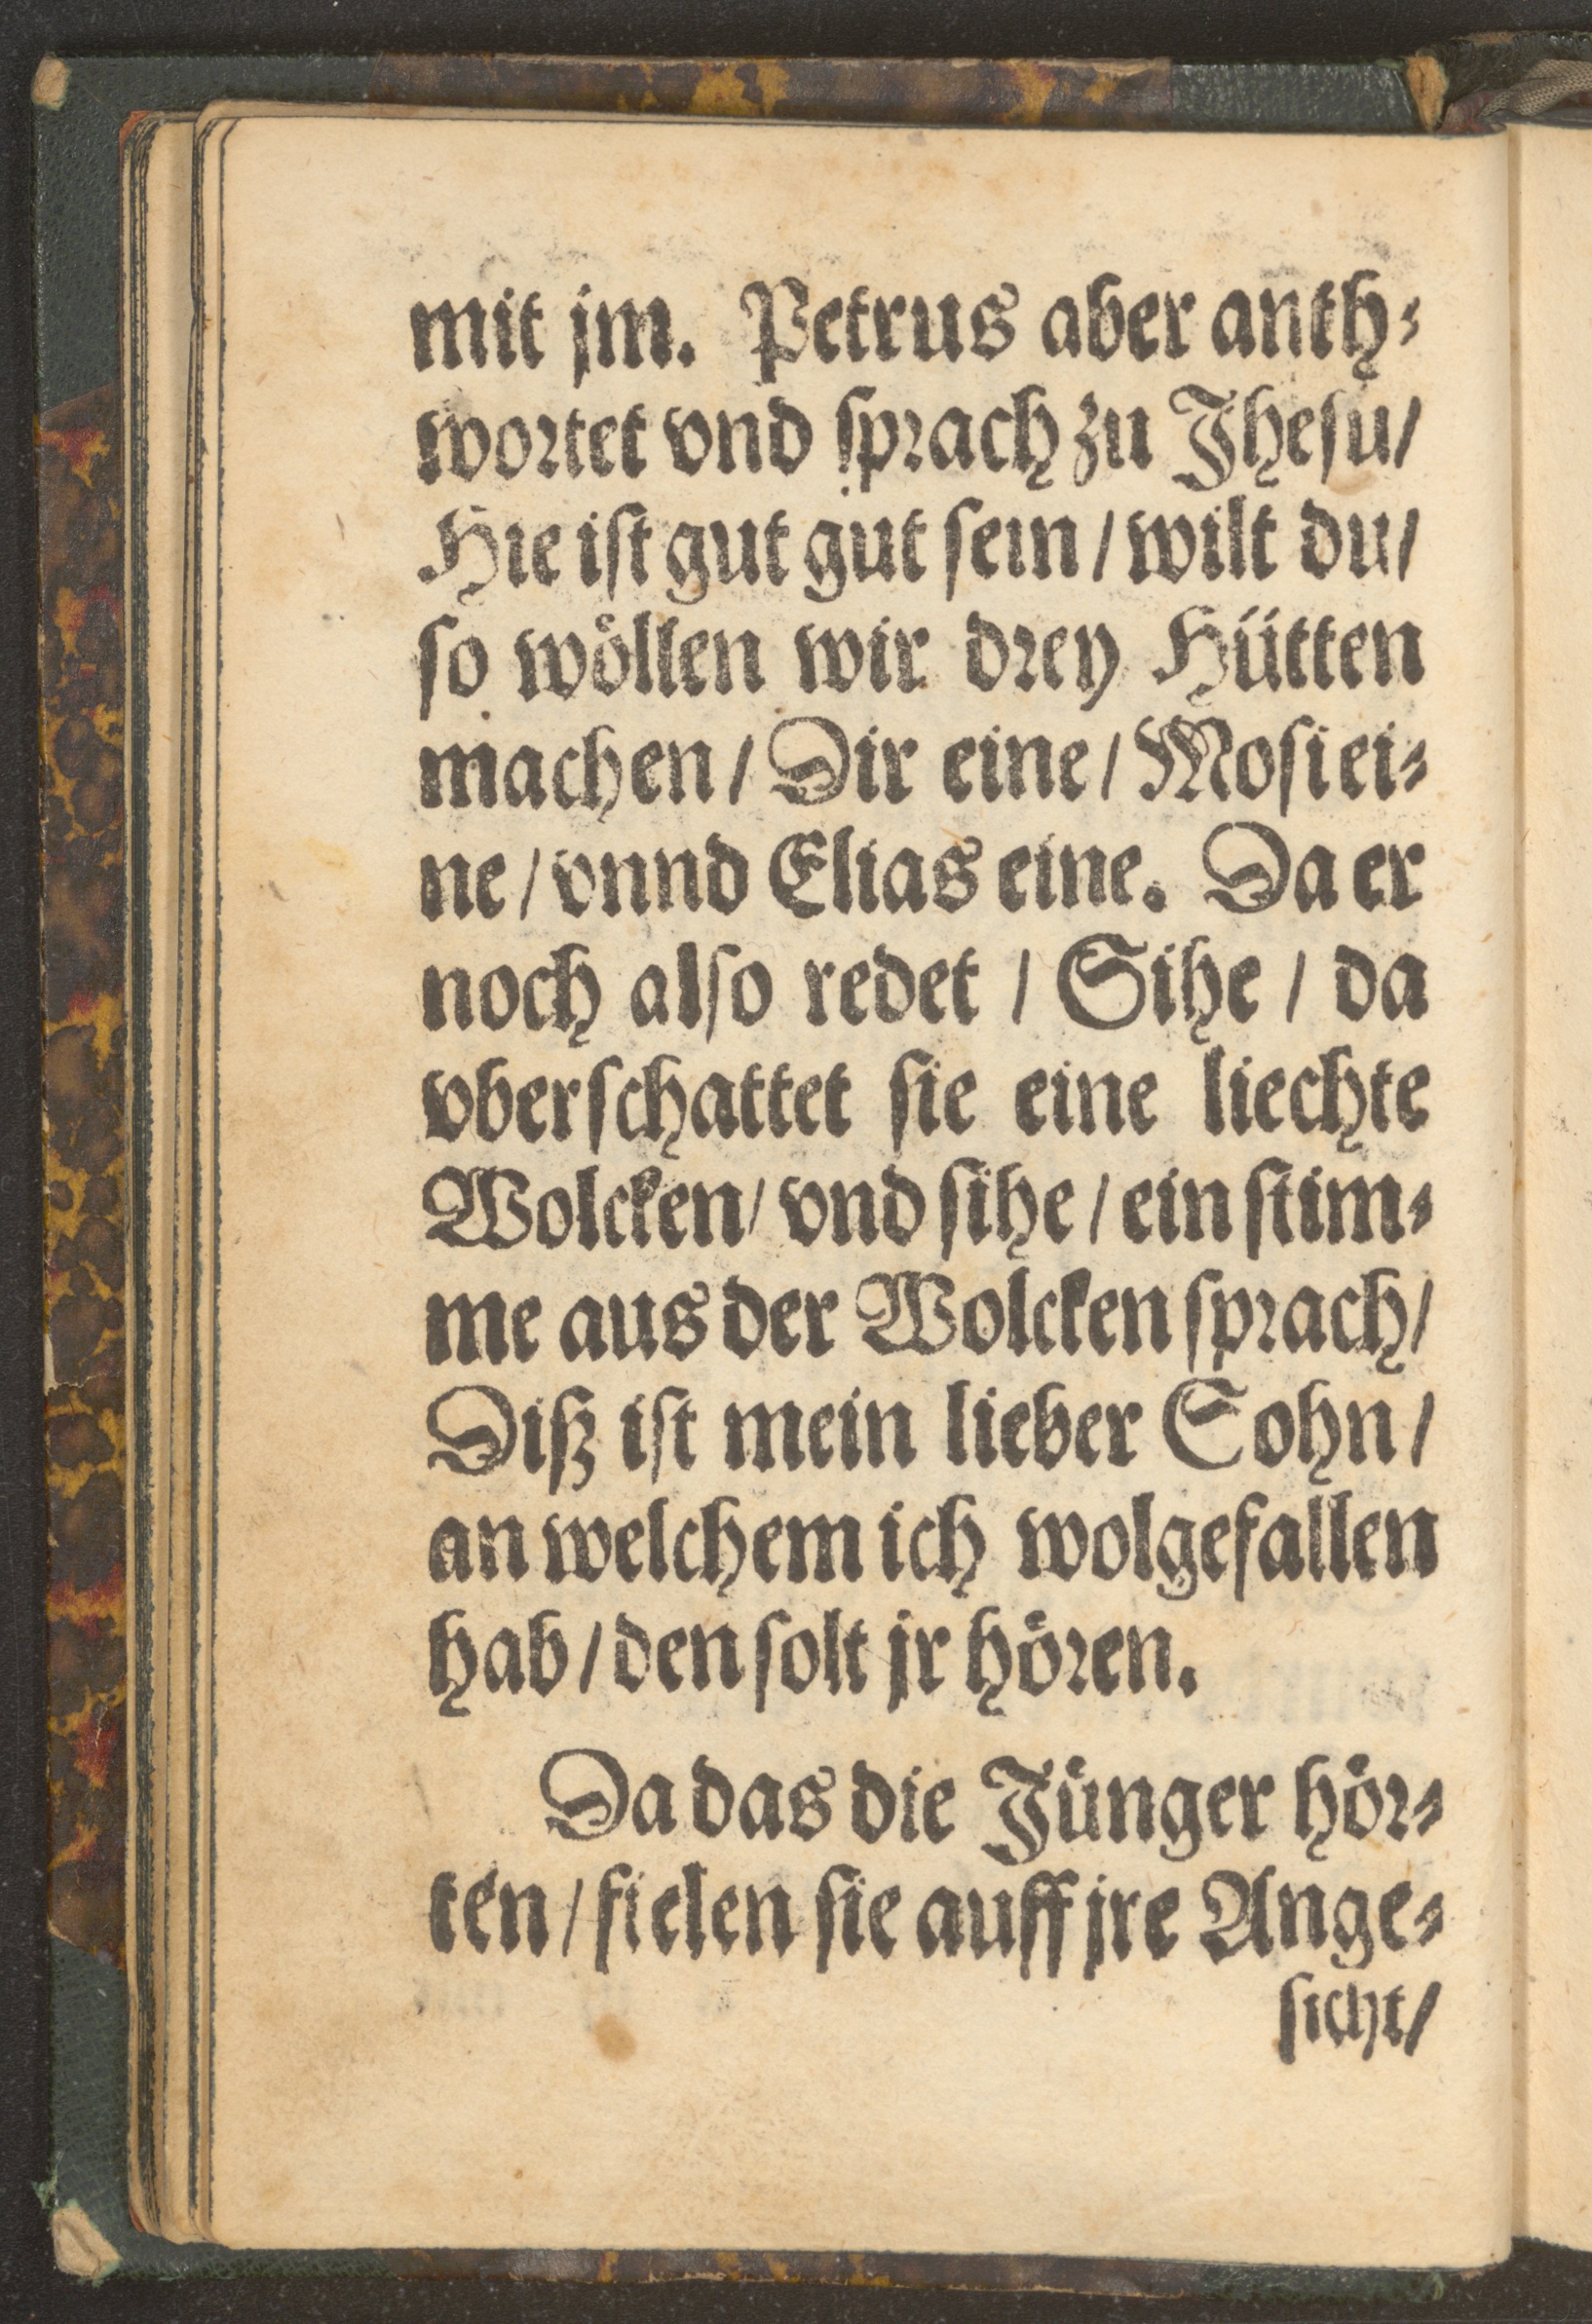 mit jm. Petrus aber anth⸗
wortet vnd ſprach zu Jheſu/
Hie iſt gut gut ſein/ wilt du/
ſo wöllen wir drey Hütten
machen/ Dir eine/ Moſi ei⸗
ne/ vnnd Elias eine. Da er
noch alſo redet / Sihe / da
vberſchattet ſie eine liechte
Wolcken/ vnd ſihe/ ein ſtim⸗
me aus der Wolcken ſprach/
Diß iſt mein lieber Sohn/
an welchem ich wolgefallen
hab/ den ſolt jr hören.
Da das die Jünger hör⸗
ten/ fielen ſie auff jre Ange⸗
ſicht/